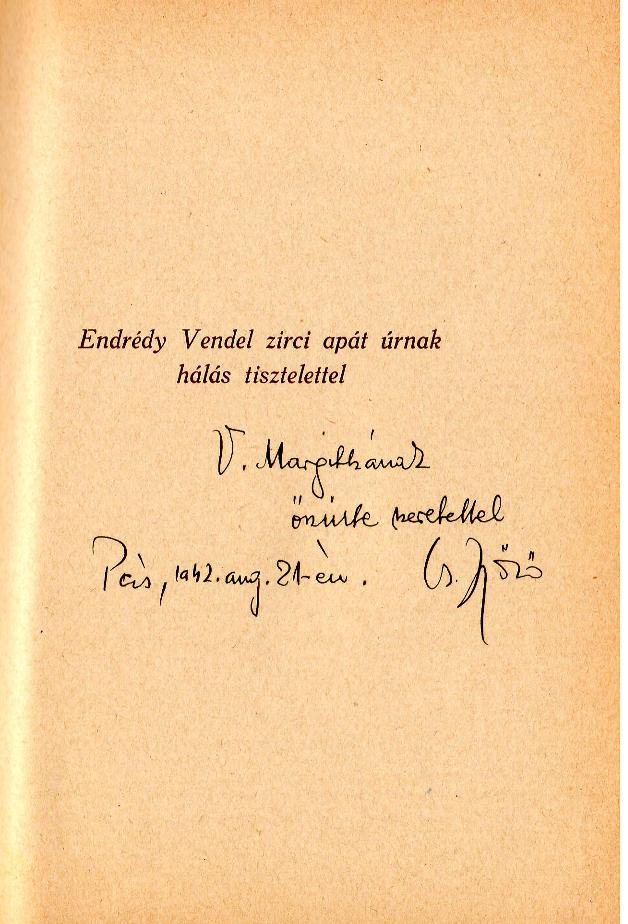 Endrédy Vendel zirci apát úrnak
hálás tisztelettel
V. Margitkának
őszinte szeretettel
Pécs, 1942. aug. 21-én.